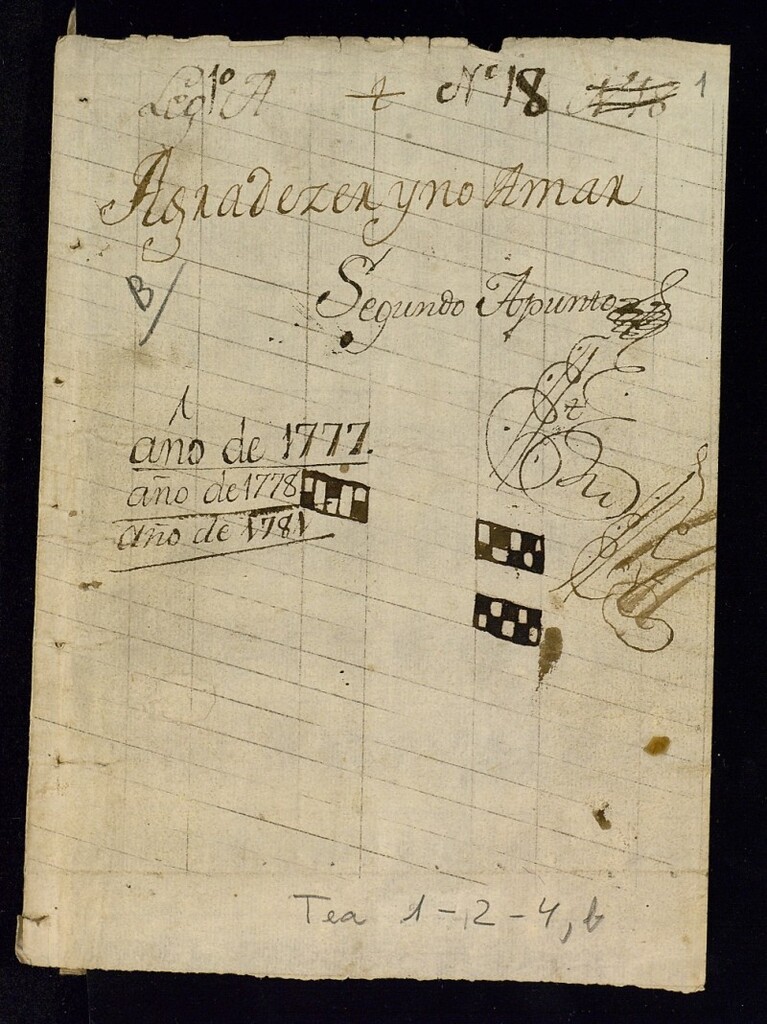 Leg 1º A + Nº 18 Nº 18 1
Agradezer y no Amar
B/
Segundo Apunto
1
año de 1777.
año de 1778
año de 1781
Tea 1-2-4, b